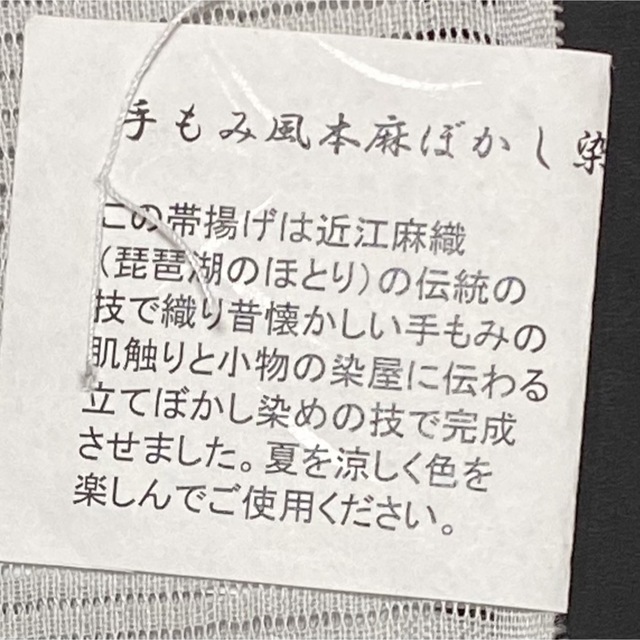 手もみ風本麻ぼかし染
この帯揚げは近江麻織
（琵琶湖のほとり）の伝統の
技で織り昔懐かしい手もみの
肌触りと小物の染屋に伝わる
立てぼかし染めの技で完成
させました。夏を涼しく色を
楽しんでご使用ください。